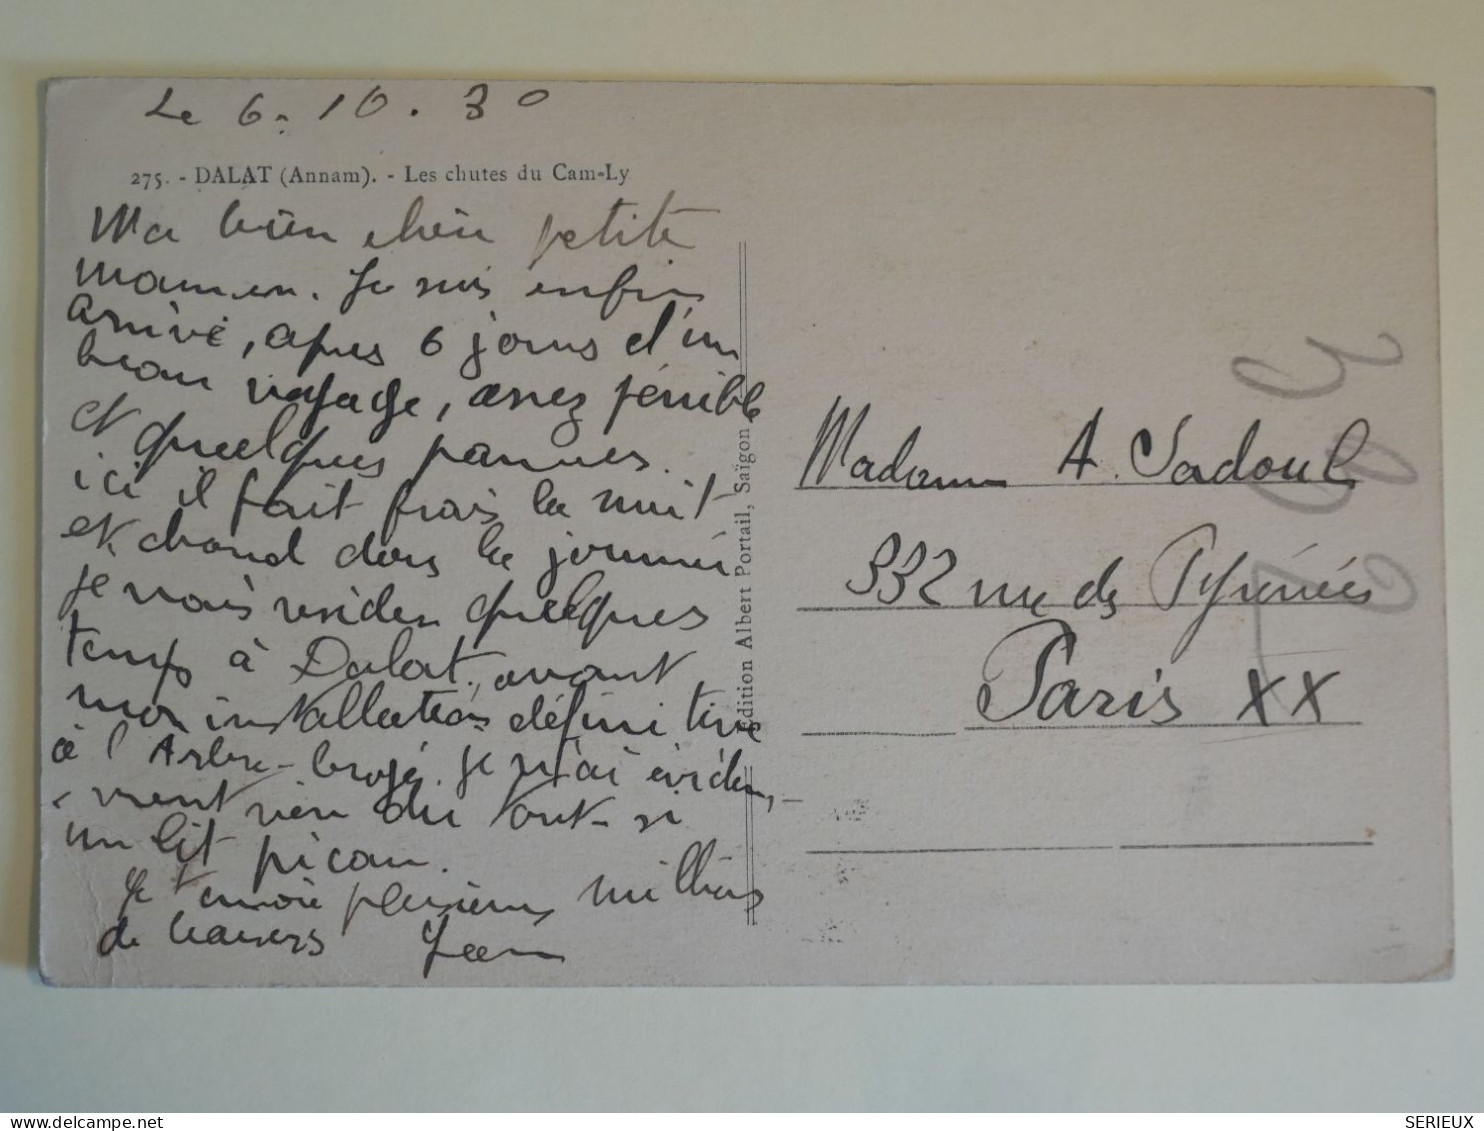 Le 6. 10. 30
275. - DALAT (Annam). - Les chutes du Cam-Ly
Ma bien chère petite
maman. Je suis enfin
arrivé, après 6 jours d'un
beau voyage, assez pénible
et quelques pannes.
ici il fait frais la nuit
et chaud dans la journée
je vais résider quelques
temps à Dalat, avant
mon installation définitive
à l'Arbre-broyé. Je n'ai éviden-
-ment rien du tout si
un lit picau.
Je t'envoie plusieurs milliers
de baisers Jean
Edition Albert Portail, Saïgon
Madame A. Sadoul
332 rue des Pyrénées
Paris XX
SERIEUX